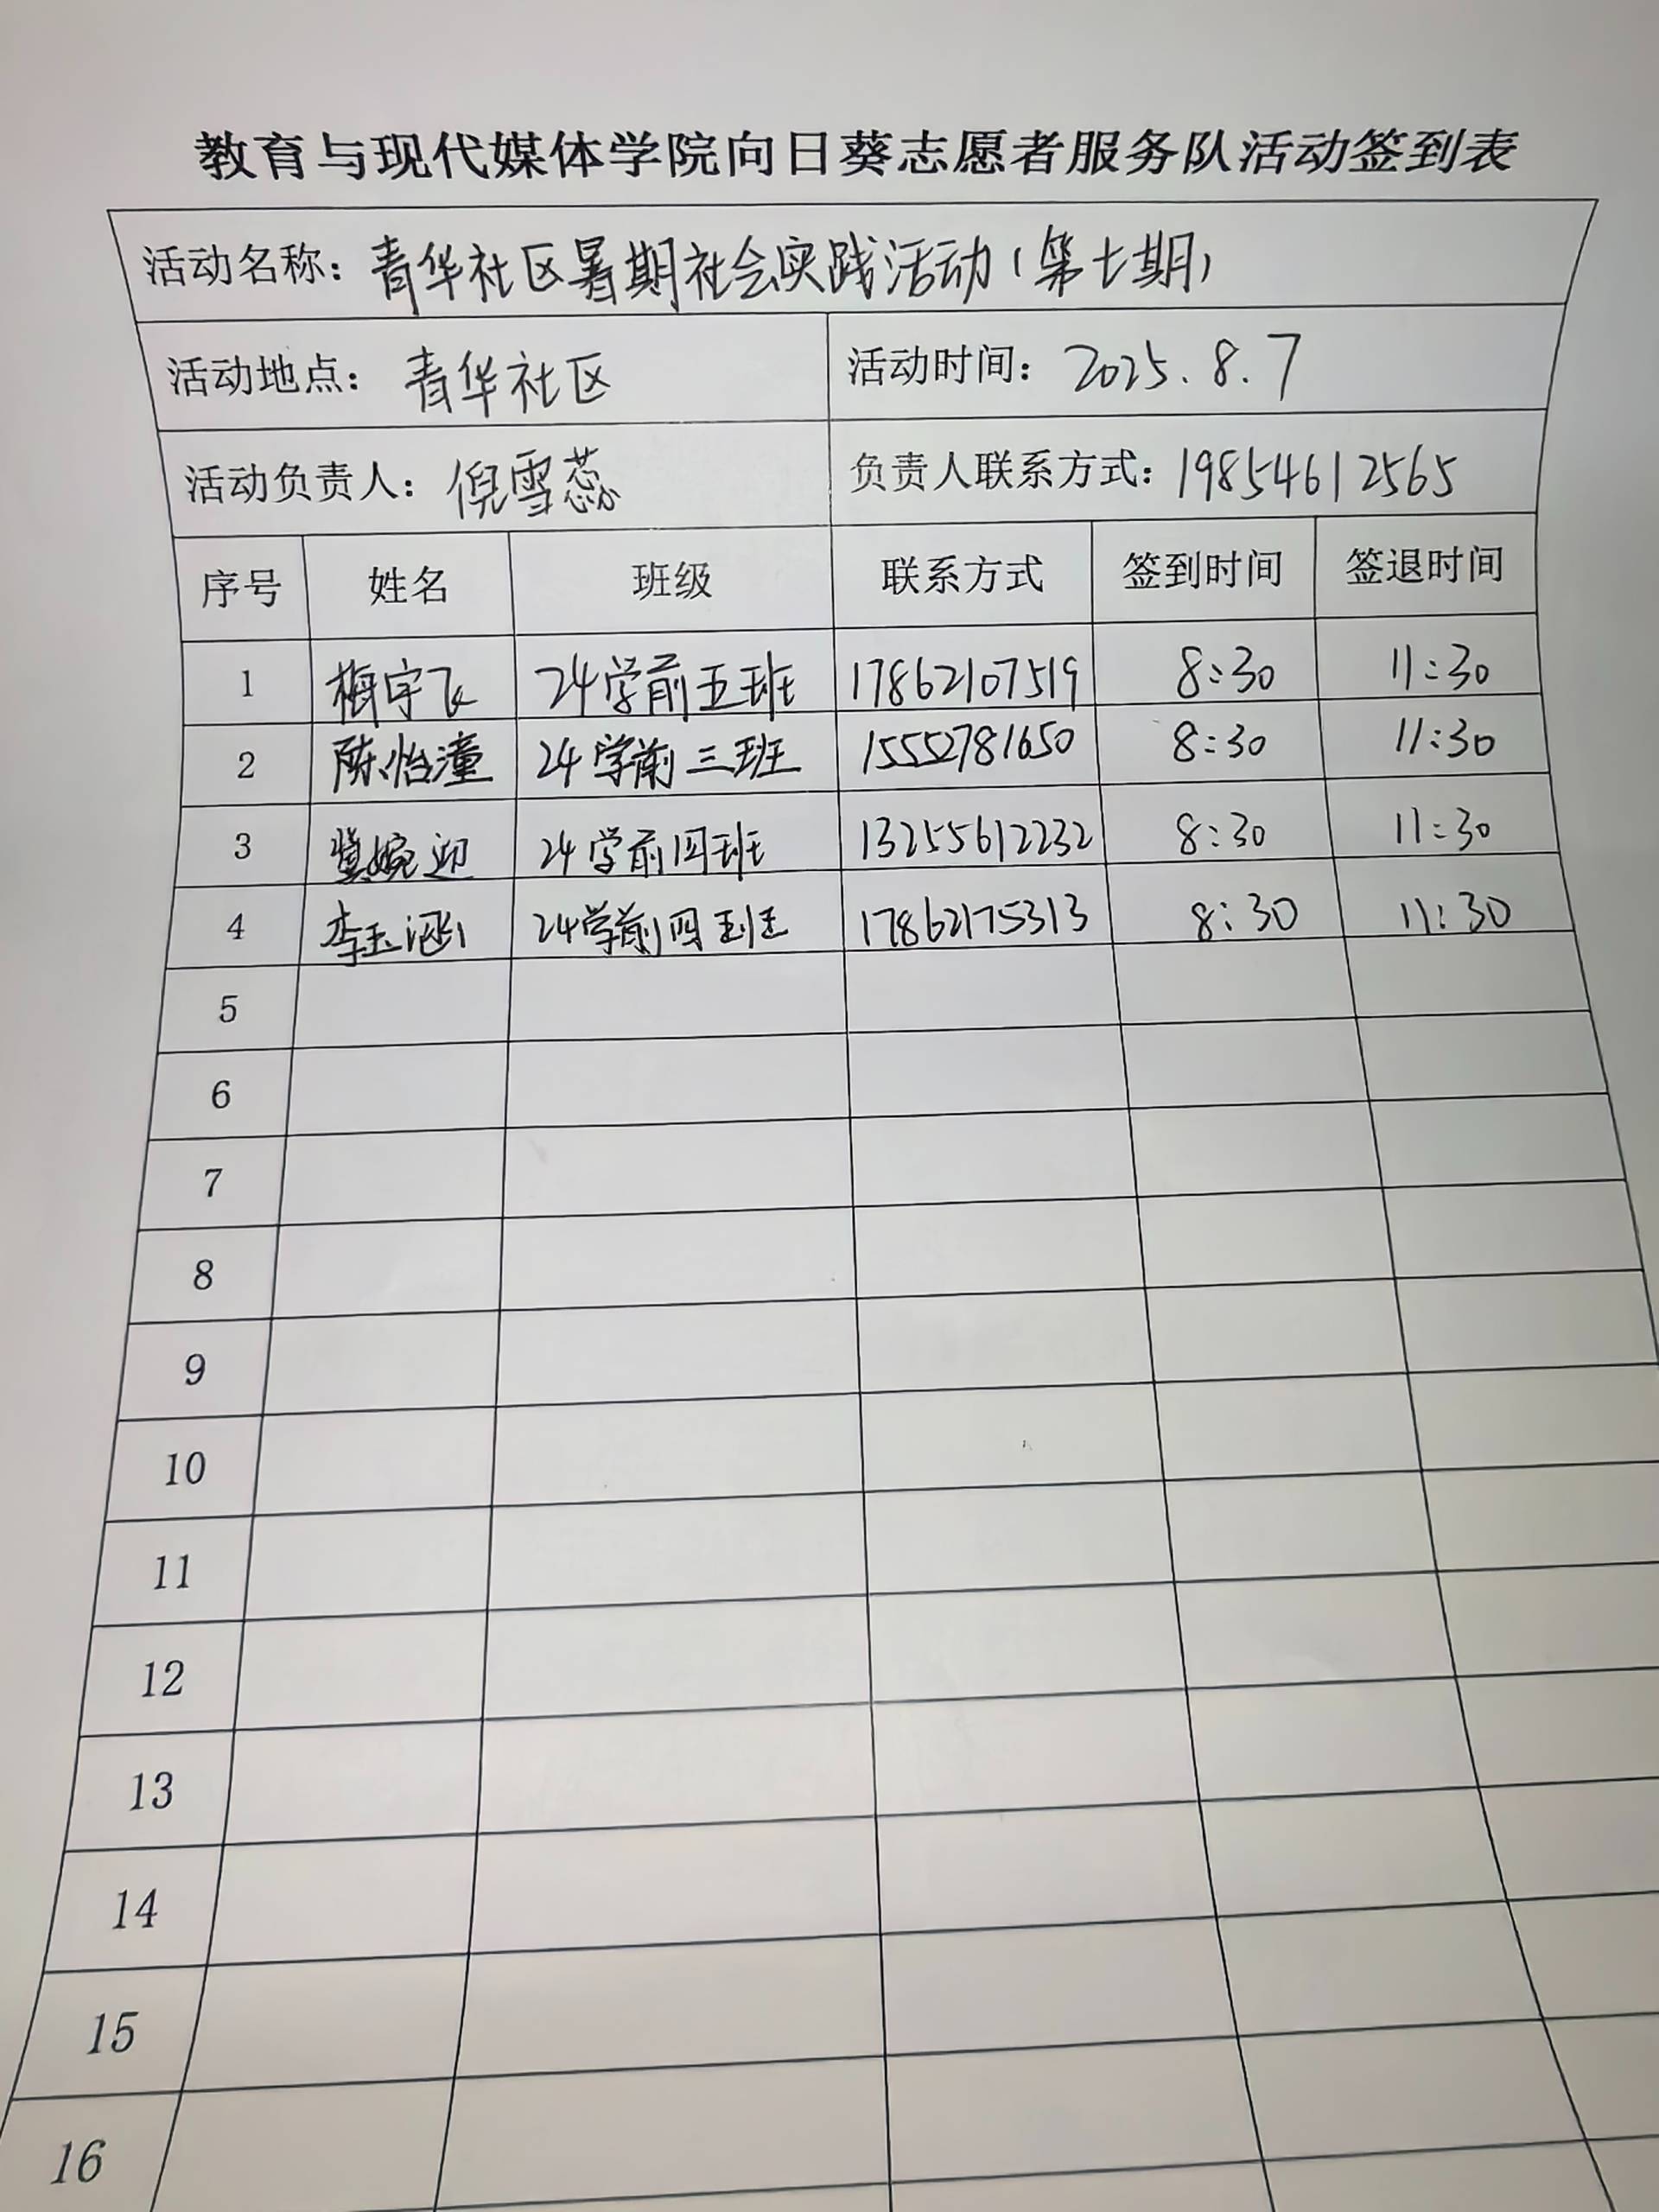 教育与现代媒体学院向日葵志愿者服务队活动签到表
活动名称：青华社区暑期社会实践活动（第七期）
活动地点：青华社区 活动时间：2025.8.7
活动负责人：倪雪蕊 负责人联系方式：19854612565
序号 姓名 班级 联系方式 签到时间 签退时间
1 梅宇飞 24学前五班 17862107519 8:30 11:30
2 陈怡潼 24学前三班 15552781650 8:30 11:30
3 冀婉迎 24学前四班 13255612232 8:30 11:30
4 李玉涵 24学前四班 17862175313 8:30 11:30
5
6
7
8
9
10
11
12
13
14
15
16